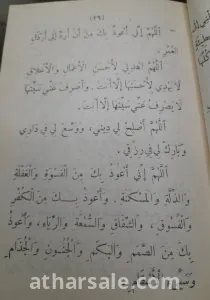 (٢٩)
- اللَّهُمَّ إِنِّي أَعُوذُ بِكَ مِنْ أَنْ أُرَدَّ إِلَى أَرْذَلِ
الْعُمُرِ.
اللَّهُمَّ اهْدِنِي لِأَحْسَنِ الْأَعْمَالِ وَالْأَخْلَاقِ
لَا يَهْدِي لِأَحْسَنِهَا إِلَّا أَنْتَ. وَاصْرِفْ عَنِّي سَيِّئَهَا
لَا يَصْرِفُ عَنِّي سَيِّئَهَا إِلَّا أَنْتَ.
اللَّهُمَّ أَصْلِحْ لِي دِينِي، وَوَسِّعْ لِي فِي دَارِي
وَبَارِكْ لِي فِي رِزْقِي.
اللَّهُمَّ إِنِّي أَعُوذُ بِكَ مِنَ الْقَسْوَةِ وَالْغَفْلَةِ
وَالذِّلَّةِ وَالْمَسْكَنَةِ. وَأَعُوذُ بِكَ مِنَ الْكُفْرِ
وَالْفُسُوقِ، وَالشِّقَاقِ وَالسُّمْعَةِ وَالرِّيَاءِ، وَأَعُوذُ
بِكَ مِنَ الصَّمَمِ وَالْبُكْمِ وَالْجُنُونِ وَالْجُذَامِ
atharsale.com